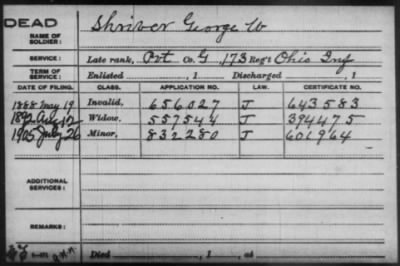 DEAD
NAME OF SOLDIER: Shriver George W
SERVICE: Late rank, Pvt Co. G, 173 Reg't Ohio Inf
TERM OF SERVICE: Enlisted , 1 Discharged , 1
DATE OF FILING. CLASS. APPLICATION NO. LAW. CERTIFICATE NO.
1888 May 19 Invalid, 656027 J 643583
1892 Aug 12 Widow, 557544 J 394475
1905 July 26 Minor, 832280 J 601964
ADDITIONAL SERVICES:
REMARKS:
Died , 1 , at